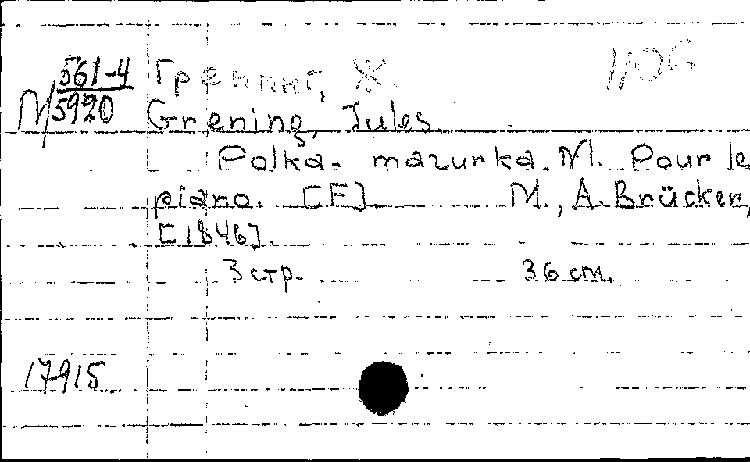 М 561-4/5920
Гренинг, Ж.
Grening, Jules
Polka-mazurka. М. Pour le
piano. [F] М., A. Brücker,
[1846].
3 стр. 36 см.
17915